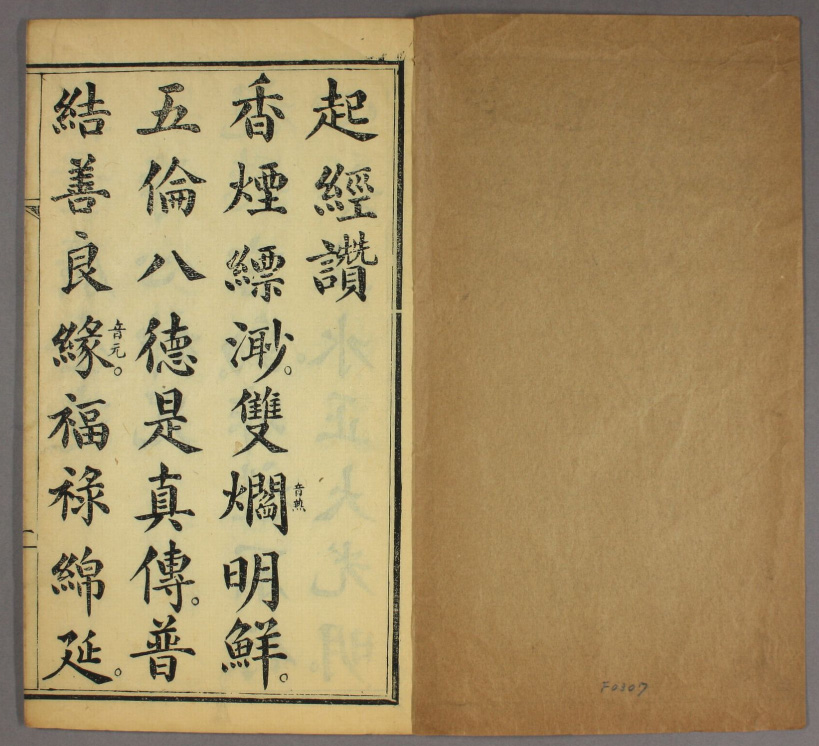 起經讚
香煙縹渺。雙爓音明鮮。
五倫八德是真傳。普
結善良緣音元。福祿綿延。
F0307